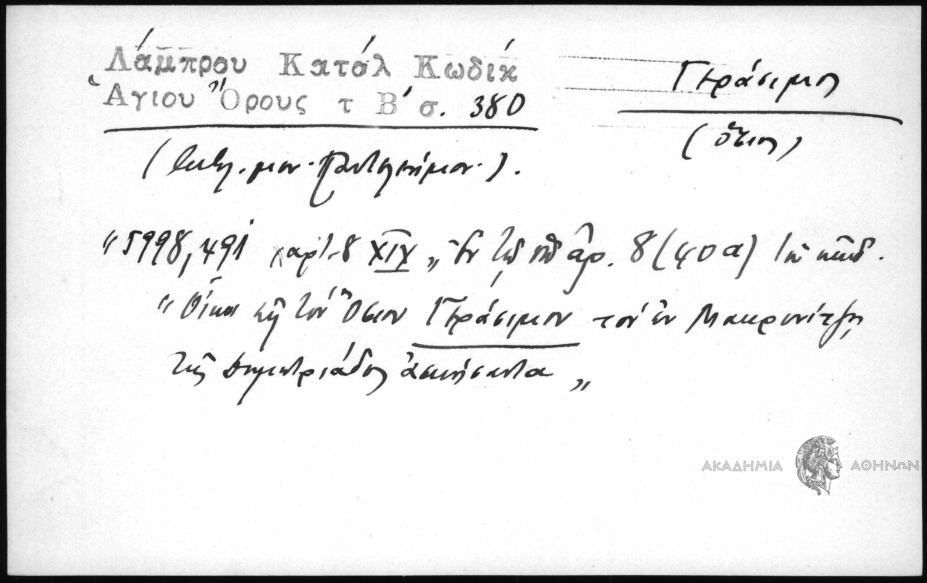 Λάμπρου Κατάλ Κωδίκ
Ἁγίου Ὄρους τ Β΄ σ. 380
Γεράσιμος
(ὅσιος)
(Βιβλ. μον. Παντελεήμον.).
"5998, 491 χαρτ. 8 XIX „ Ἐν τῷ ὑπ ἀρ. 8 (φ 0 α)
"Οἶκοι εἰς τὸν Ὅσιον Γεράσιμον τὸν ἐν Μακρυνίτζῃ
τῆς Δημητριάδος ἀσκήσαντα „
ΑΚΑΔΗΜΙΑ ΑΘΗΝΩΝ